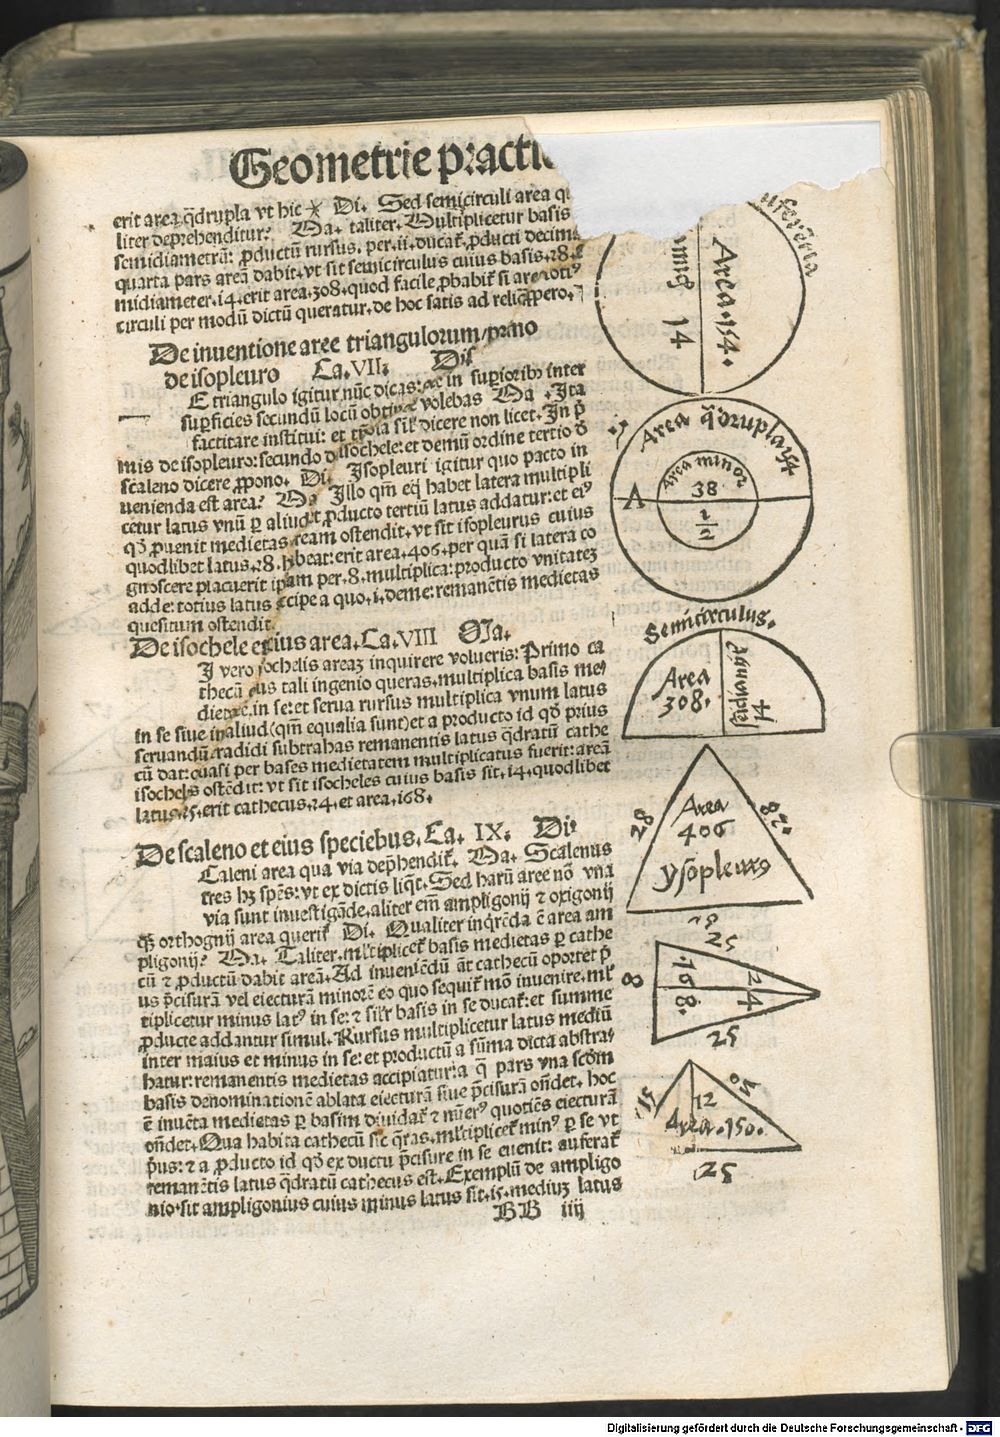 Geometrie practi
erit area q̃drupla vt hic Di. Sed semicirculi area q
liter deprehenditur? Ma. taliter. Multiplicetur basis
semidiametrũ: ꝓductũ rursus. per. ii. ducat᷑. ꝓducti decima
quarta pars areã dabit. vt sit semicirculus cuius basis. 28.
midiameter. 14. erit area. 308. quod facile ꝓbabit᷑ si are toti⁹
circuli per modũ dictũ queratur. de hoc satis ad reliq̃ ꝓpero.
De inuentione aree triangulorum / primo
de isopleuro Ca. VII. Dis
E triangulo igitur nũc dicas: in supꝯiorib⁹ inter
superficies secundũ locũ obtinere volebas Ma. Ita
factitare institui: et sil᷑ dicere non licet. In p̃
mis de isopleuro: secundo d isochele: et demũ ordine tertio d̃
scaleno dicere ꝓpono. Di. Isopleuri igitur quo pacto in
uenienda est area? Ma Illo qm̃ eq̃ habet latera multipli
cetur latus vnũ ꝑ aliud et ꝓducto tertiũ latus addatur: et ei⁹
qd̃ ꝓuenit medietas aream ostendit. vt sit isopleurus cuius
quodlibet latus. 28. habeat: erit area. 406. per quã si latera co
gnoscere placuerit ipsam per. 8. multiplica: producto vnitatez
adde: totius latus accipe a quo. 1. deme: remanẽtis medietas
quesitum ostendit.
De isochele et eius area. Ca. VIII Ma.
I vero isochelis areaz inquirere volueris: Primo ca
thecũ eius tali ingenio queras. multiplica basis me⁹
dietatẽ. in se: et serua rursus multiplica vnum latus
in se siue in aliud (qm̃ equalia sunt) et a producto id qd̃ prius
seruandũ tradidi subtrahas remanentis latus q̃dratũ cathe
cũ dat: quasi per bases medietatem multiplicatus fuerit: areã
isochelis ostẽdit: vt sit isocheles cuius basis sit. 14. quodlibet
latus. 25. erit cathecus. 24. et area. 168.
De scaleno et eius speciebus. Ca. IX. Di⁹
Caleni area qua via dep̃hendit᷑. Ma. Scalenus
tres hz sp̃es: vt ex dictis liq̃t. Sed harũ aree nõ vna
via sunt inuestigãde. aliter em̃ ampligonij ⁊ oxigonij
qz̃ orthognij area querit᷑ Di. Qualiter inq̃rẽda ẽ area am
pligonij? Ma. Taliter. ml᷑tiplicet᷑ basis medietas ꝑ cathe
cũ ⁊ ꝓductũ dabit areã. Ad inueniẽdũ ãt cathecũ oportet p̃
us p̃cisurã vel eiecturã minorẽ eo quo sequit᷑ mõ inuenire. ml᷑
tiplicetur minus lat⁹ in se: ⁊ sil᷑r basis in se ducat᷑: et summe
ꝓducte addantur simul. Rursus multiplicetur latus mediũ
inter maius et minus in se: et productũ a sũma dicta abstra⸗
hatur: remanentis medietas accipiatur: a q̃ pars vna scd̃m
basis denominationẽ ablata eiecturã siue p̃cisurã oñdet. hoc
ẽ inuẽta medietas ꝑ basim diuidat᷑ ⁊ nũer⁹ quotiẽs eiecturã
oñdet. Qua habita cathecũ sic q̃ras. ml᷑tiplicet᷑ min⁹ ꝑ se vt
p̃us: ⁊ a ꝓducto id qd̃ ex ductu p̃cisure in se euenit: auferat᷑
remanẽtis latus q̃dratũ cathecus est. Exemplũ de ampligo
nio. sit ampligonius cuius minus latus sit. 15. mediuz latus
BB iiij
uferẽtia
Area. 154.
14
Area q̃drupla 154
Area minor
38
1/2
A
Semicirculus.
Area
308.
Semidiameter
14
28
28.
Area
406
ysopleurus
28
25
8
.168.
24
25
15
20
12
Area. 150.
25
Digitalisierung gefördert durch die Deutsche Forschungsgemeinschaft - DFG